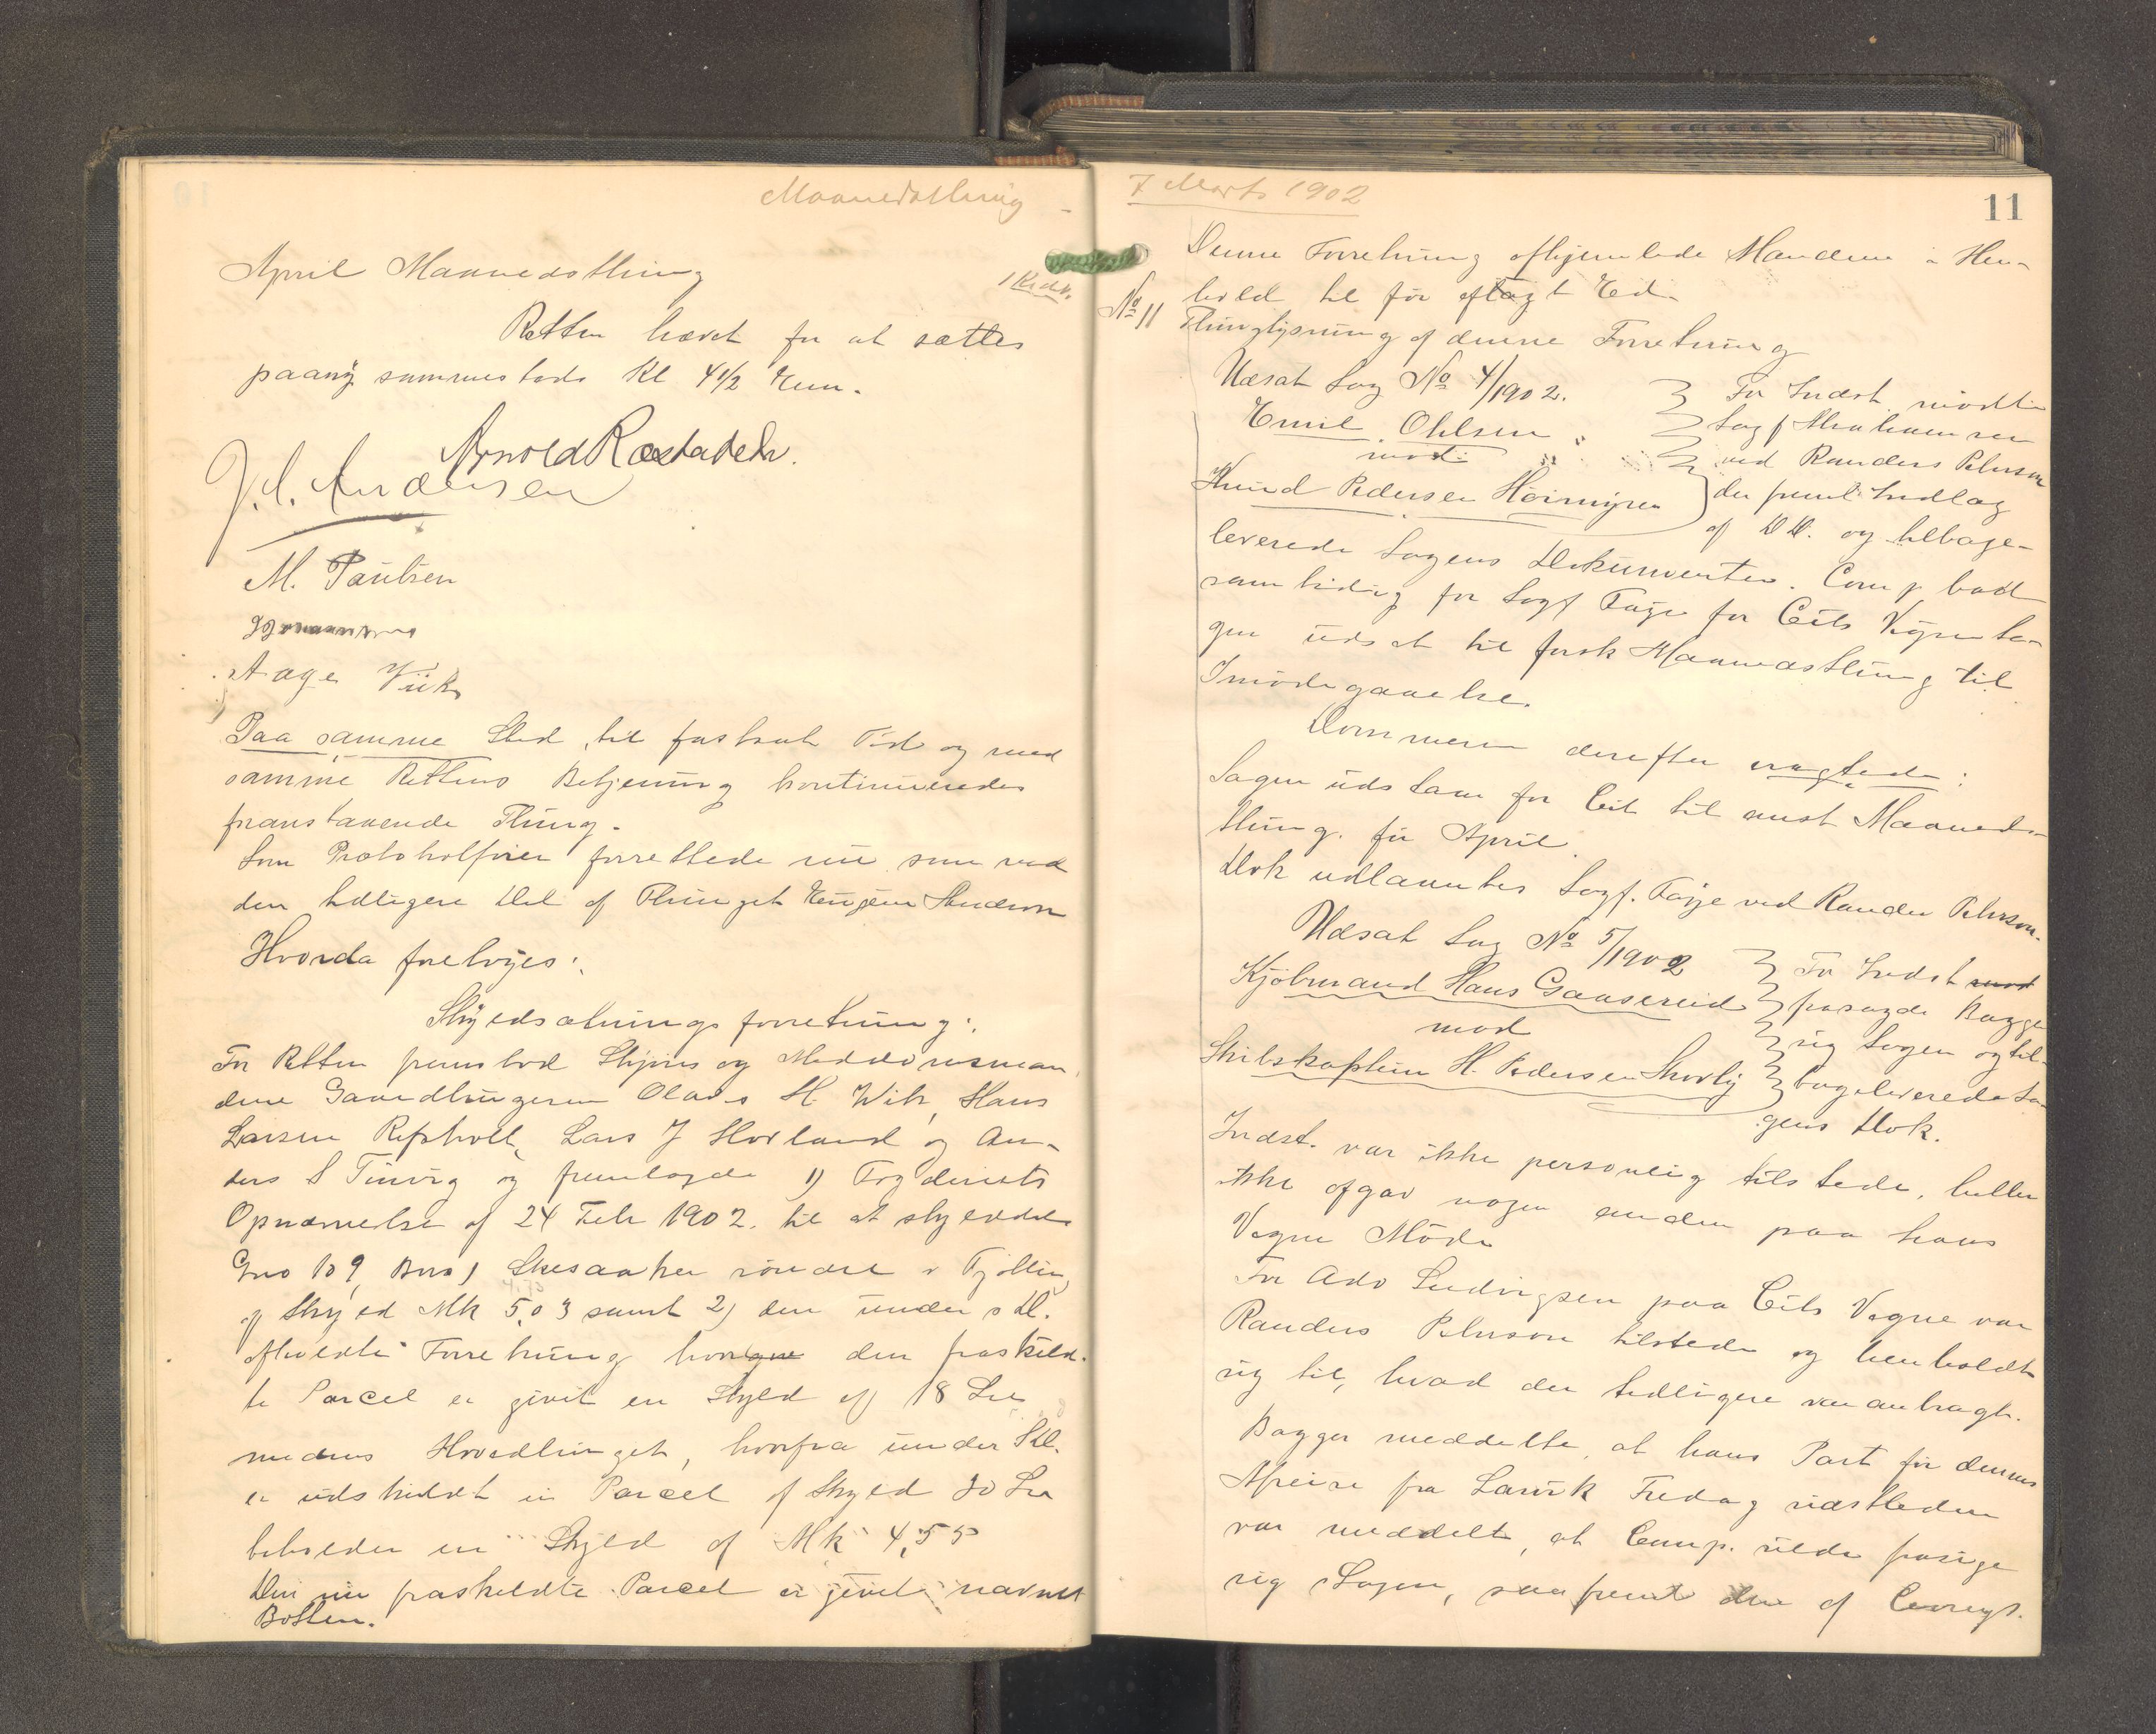 Maanedsthing
April Maanedsthing
Retten hævet for at sættes
paany sammesteds Kl 4 1/2 Em.
Arnold Ræstad
J. A. Andersen
M. Paulsen
Aage Viik
Paa samme Sted, til fastsat Tid og med
samme Rettens Betjening kontinueredes
franstaaende Thing.
Som Protokolfører forrettede nu som ved
den tidligere Del af Thinget
Hvorda foretoges:
Skyldsætningsforretning:
For Retten fremstod Skjøns og Meddomsmæn
dene Gaardbrugerne Olaus H. Wik, Hans
Larsen Refsholt, Lars J Hovland og An-
ders S Tinvig og fremlagde 1) Fogderiets
Opnævnelse af 24 Febr 1902 til at skylddele
Gno 109, Bno 1 søndre i Tjølling
af Skyld Mk 5,03 samt 2) den under s D.
afholdte Forretning hvorved den fraskild-
te Parcel er givet en Skyld af 18 Øre
medens Hovedbruget, hvorfra under s D.
er udskildt en Parcel af Skyld 30 Øre
beholder en Skyld af Mk 4,55
Den nu fraskildte Parcel er givet navnet
Botten.
7 Marts 1902
11
1 Kr
Denne Forretning afhjemlede Mændene i Hen-
hold til før aflagt Ed.
No 11 Thinglysning af denne Forretning
Udsat Sag No 4/1902.
Emil Ohlsen
mod
Knud Pedersen Höimyren
For Indst. mødte
Sagf
ved Randers Pehrson
der freml. Indlæg
af D D. og tilbage-
leverede Sagens Dokumenter. Comp bad
samtidig for Sagf Føyn for Cits Vegne Sa-
gen udsat til først Maanedsthing til
Imødegaaelse.
Dommeren derefter eragtede:
Sagen udstaar for Cit til næst Maaneds-
thing for April
Dok udlaantes Sagf. ved Randers Pehrson.
Udsat Sag No 5/1902
Kjøbmand Hans Gaasereid
mod
Skibskaptein H. Pedersen Skovly
For Indst
frasagde Bagger
sig Sagen og til-
bageleverede Sa-
gens Dok.
Indst. var ikke personlig tilstede, heller
ikke afgav nogen anden paa hans
Vegne Møde
For Adv Ludvigsen paa Cits Vegne var
Randers Pehrson tilstede og henholdt
sig til, hvad der tidligere var anbragt.
Bagger meddelte, at hans Part før dennes
Afreise fra Larvik Fredag sidstleden
var meddelt, at Comp. vilde frasige
sig Sagen, saafremt den af